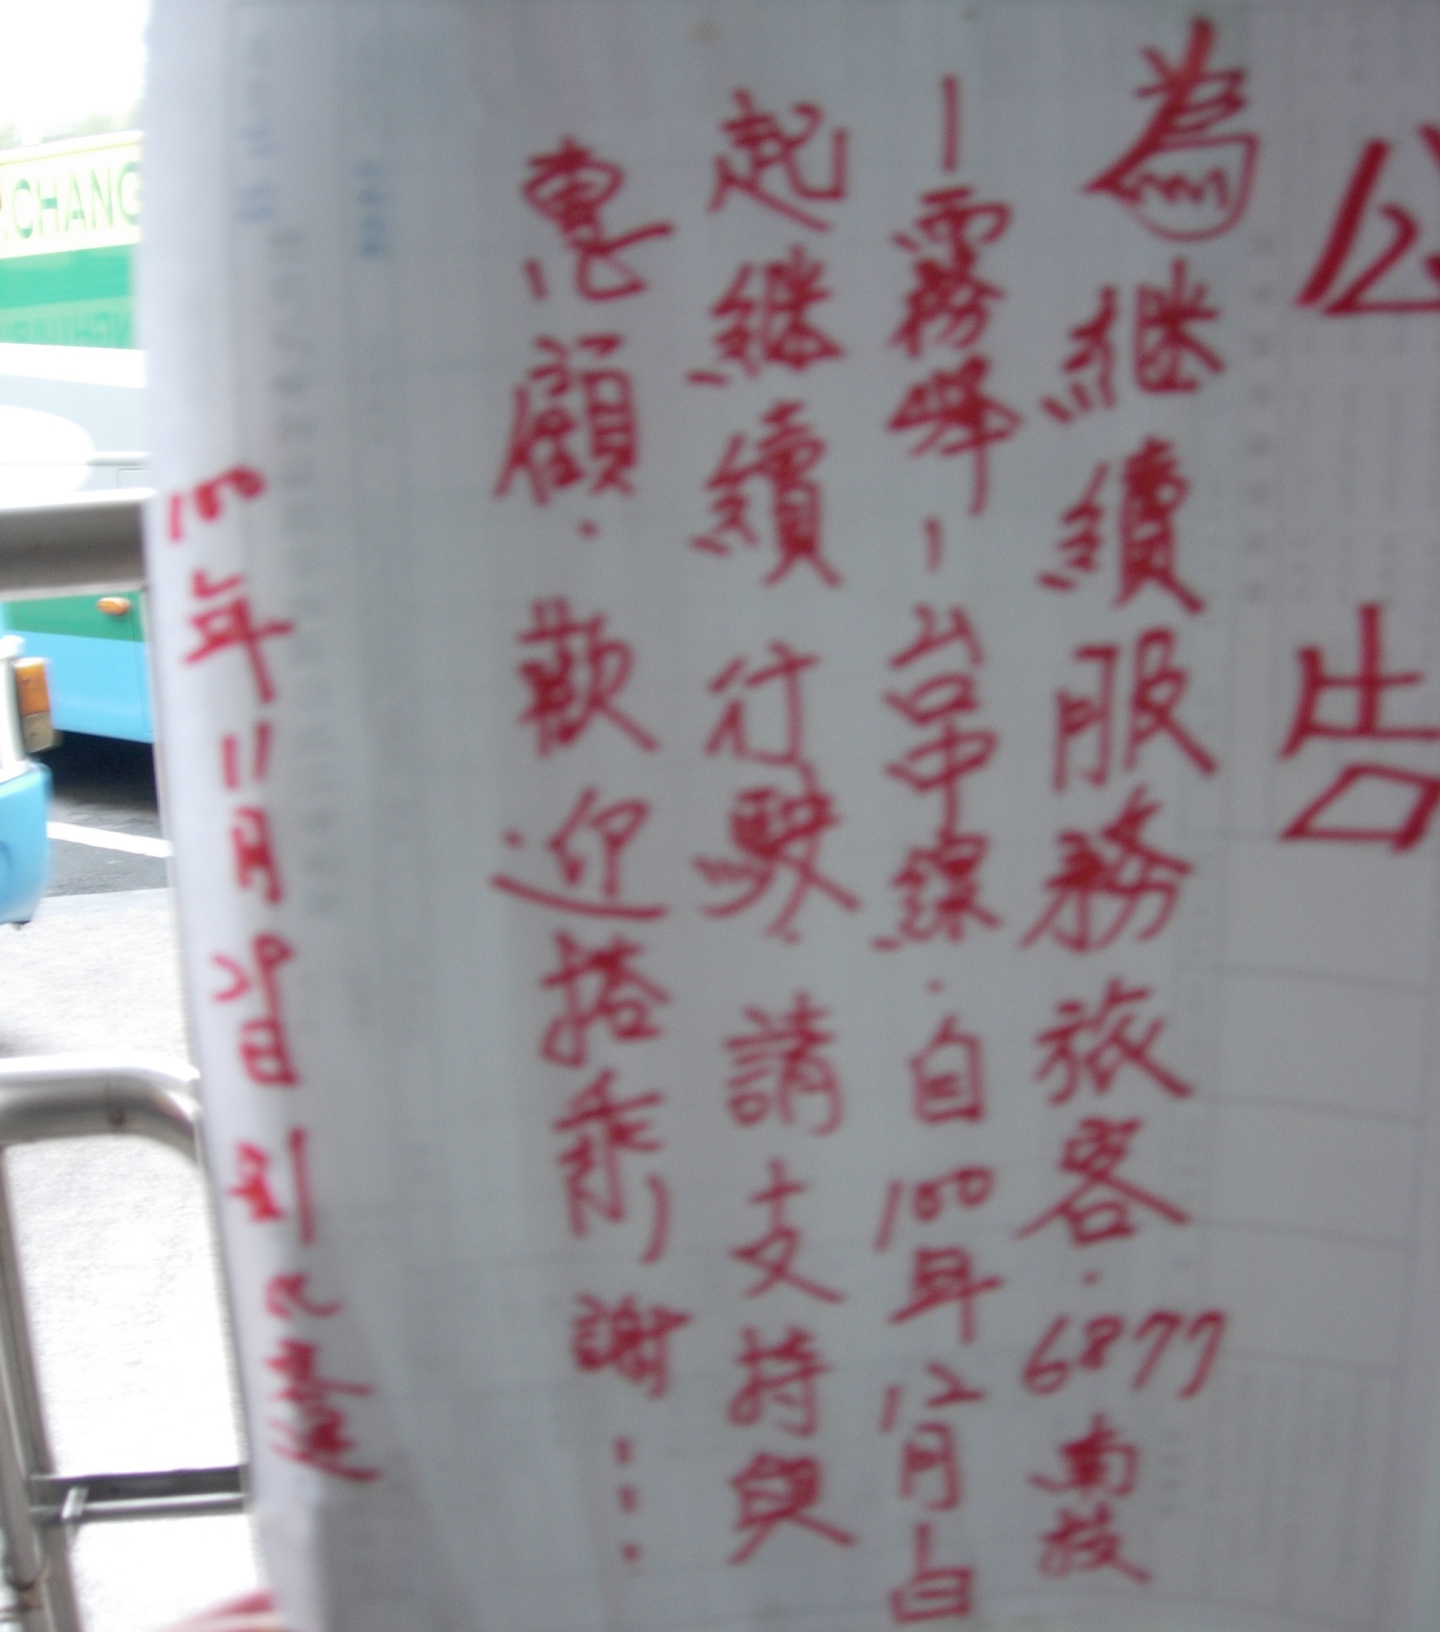 公告
為繼續服務旅客.6877南投
—霧峰—台中線.自100年12月1日
起繼續行駛.請支持與
惠顧.歡迎搭乘!謝...
年11月29日
CHANG